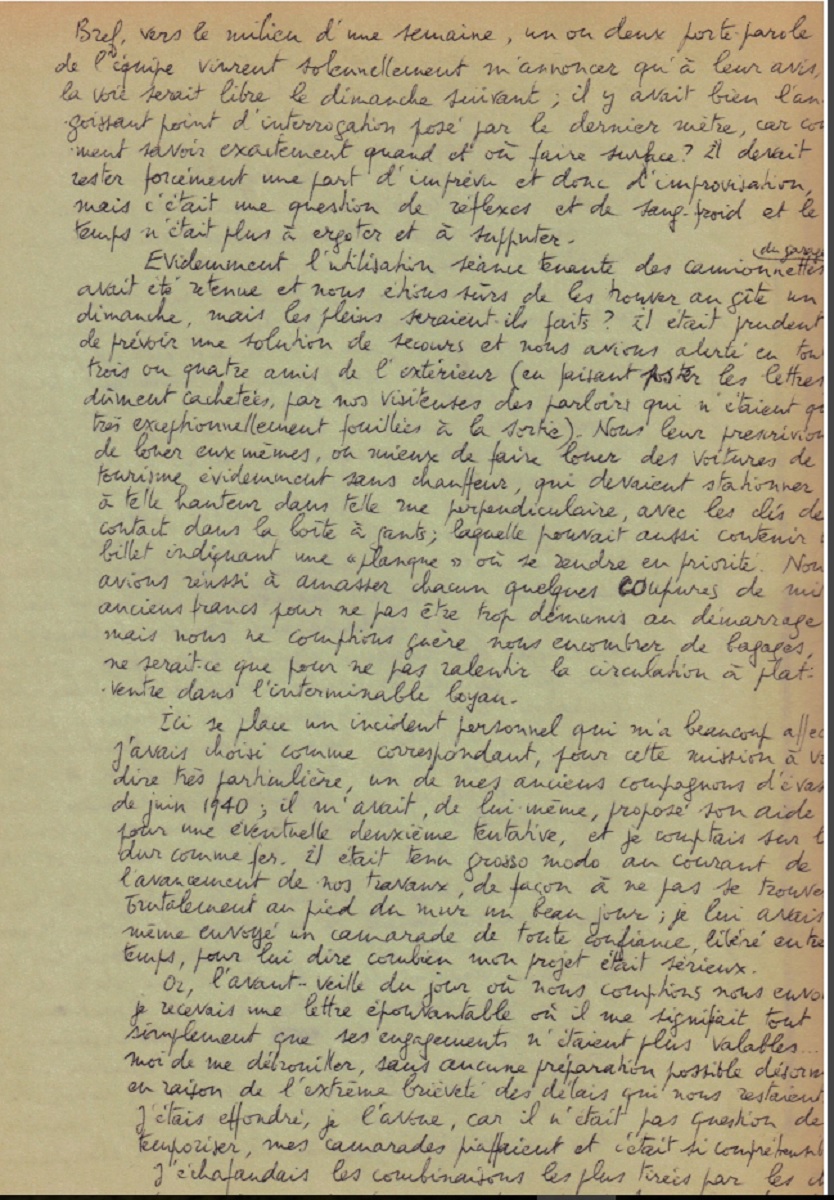 Bref, vers le milieu d'une semaine, un ou deux porte-parole
de l'équipe vinrent solennellement m'annoncer qu'à leur avis,
la voie serait libre le dimanche suivant ; il y avait bien l'an
goissant point d'interrogation posé par le dernier mètre, car co
ment savoir exactement quand et où faire surface ? Il devait
rester forcément une part d'imprévu et donc d'improvisation,
mais c'était une question de réflexes et de sang-froid et le
temps n'était plus à ergoter et à supputer.
(du garage
Evidemment l'utilisation séance tenante des camionnettes
avait été retenue et nous étions sûrs de les trouver au gîte un
dimanche, mais les pleins seraient-ils faits ? Il était prudent
de prévoir une solution de secours et nous avions alerté en tou
trois ou quatre amis de l'extérieur (en faisant poster les lettres
dûment cachetées, par nos visiteuses des parloirs qui n'étaient qu
très exceptionnellement fouillées à la sortie). Nous leur prescrivion
de louer eux-mêmes, ou mieux de faire louer des voitures de
tourisme, évidemment sans chauffeur, qui devaient stationner
à telle hauteur dans telle rue perpendiculaire, avec les clés de
contact dans la boîte à gants ; laquelle pouvait aussi contenir
billet indiquant une « planque » où se rendre en priorité. Nou
avions réussi à amasser chacun quelques coupures de mil
anciens francs pour ne pas être trop démunis au démarrage
mais nous ne comptions guère nous encombrer de bagages,
ne serait-ce que pour ne pas ralentir la circulation à plat-
ventre dans l'interminable boyau.
Ici se place un incident personnel qui m'a beaucoup affec
J'avais choisi comme correspondant, pour cette mission à v
dire très particulière, un de mes anciens compagnons d'évas
de juin 1940 ; il m'avait, de lui-même, proposé son aide
pour une éventuelle deuxième tentative, et je comptais sur l
dur comme fer. Il était tenu grosso modo au courant de
l'avancement de nos travaux, de façon à ne pas se trouve
brutalement au pied du mur un beau jour ; je lui avais
même envoyé un camarade de toute confiance, libéré entre
temps, pour lui dire combien mon projet était sérieux.
Or, l'avant-veille du jour où nous comptions nous envo
je recevais une lettre épouvantable où il me signifiait tout
simplement que ses engagements n'étaient plus valables...
moi de me débrouiller, sans aucune préparation possible désorm
en raison de l'extrême brièveté des délais qui nous restaient
J'étais effondré, je l'avoue, car il n'était pas question de
temporiser, mes camarades piaffaient et c'était si compréhensib
J'échafaudais les combinaisons les plus tirées par les ch